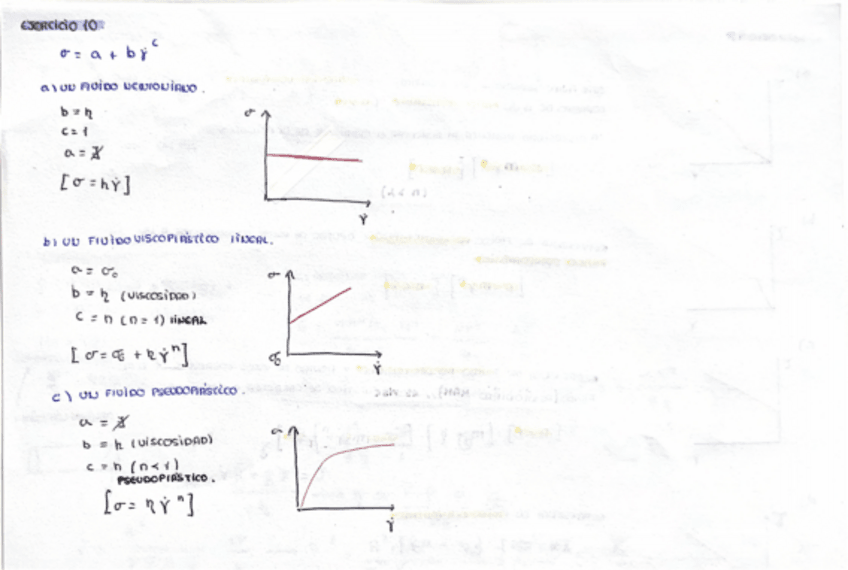 EJERCICIO 10
σ = a + b γ̇ ^c
a) UN FLUIDO NEWTONIANO.
b = η
c = 1
a = 
[σ = η γ̇]
σ
γ̇
b) UN FLUIDO VISCOPLÁSTICO LINEAL.
a = σ₀
b = η (VISCOSIDAD)
c = n (n = 1) LINEAL
[σ = σ₀ + η γ̇ ^n]
σ
σ₀
γ̇
c) UN FLUIDO PSEUDOPLÁSTICO.
a = 
b = η (VISCOSIDAD)
c = n (n < 1)
PSEUDOPLÁSTICO.
[σ = η γ̇ ^n]
σ
γ̇